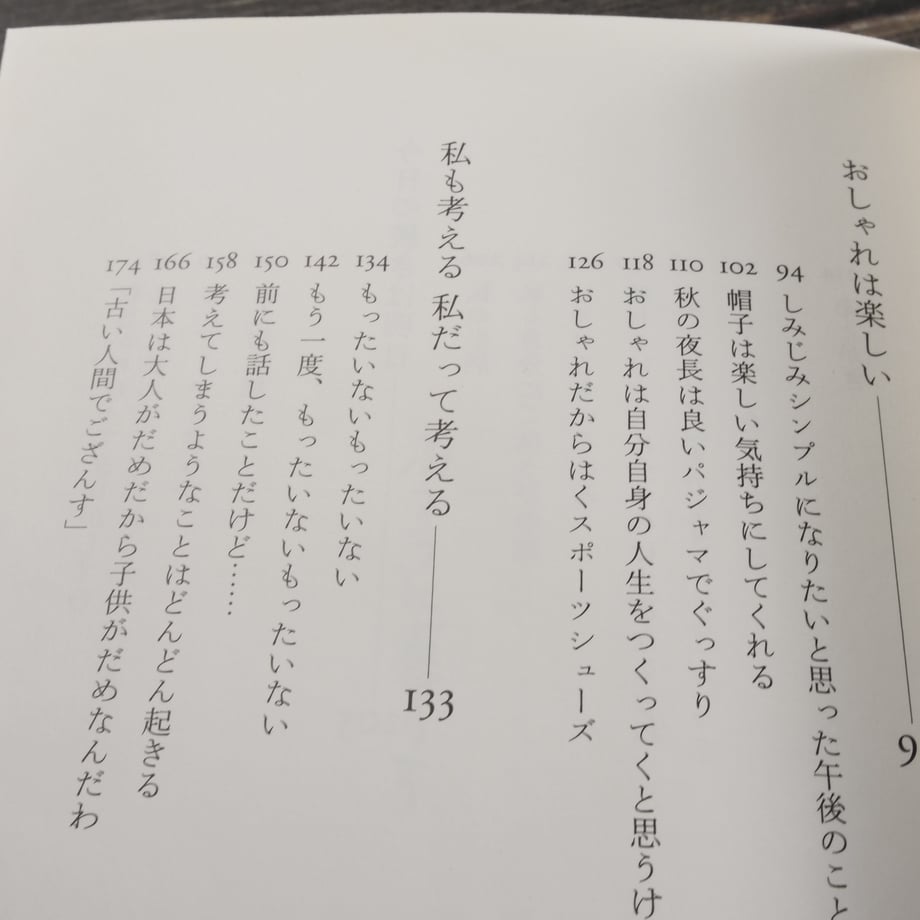 おしゃれは楽しい —— 9
94 しみじみシンプルになりたいと思った午後のこと
102 帽子は楽しい気持ちにしてくれる
110 秋の夜長は良いパジャマでぐっすり
118 おしゃれは自分自身の人生をつくってくと思うけ
126 おしゃれだからはくスポーツシューズ
私も考える 私だって考える —— 133
134 もったいないもったいない
142 もう一度、もったいないもったいない
150 前にも話したことだけど……
158 考えてしまうようなことはどんどん起きる
166 日本は大人がだめだから子供がだめなんだわ
174 「古い人間でござんす」